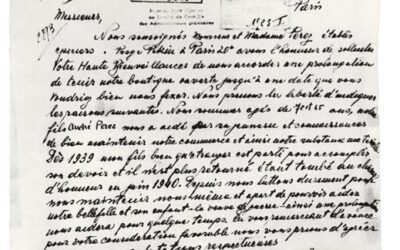 Paris
Messieurs,
Nous soussignés Monsieur et Madame Perez établis
épiciers Paris 20e avons l'honneur de solliciter
Votre Haute Bienveillance de nous accorder une prolongation
de tenir notre boutique ouverte jusqu'à une date que vous
voudriez bien nous fixer. Nous prenons la liberté d'indiquer
les raisons suivantes. Nous sommes agés de et 65 ans, notre
fils André Perez nous a cédé par sa jeunesse et connaissances
de bien maintenir notre commerce et ainsi notre substance
Dès 1939 mon fils bien qu'étranger est parti pour accomplir
son devoir et il n'est plus retourné était tombé au champ
d'honneur en juin 1940. Depuis nous luttons durement pour
nous maintenir nous même et à part de pouvoir aider
notre bellefille et son enfant la veuve de guerre ainsi une prolongation
nous aidera pour quelque temps. En vous remerciant d'avance
pour votre considération favorable nous vous prions d'agréer
respectueuses